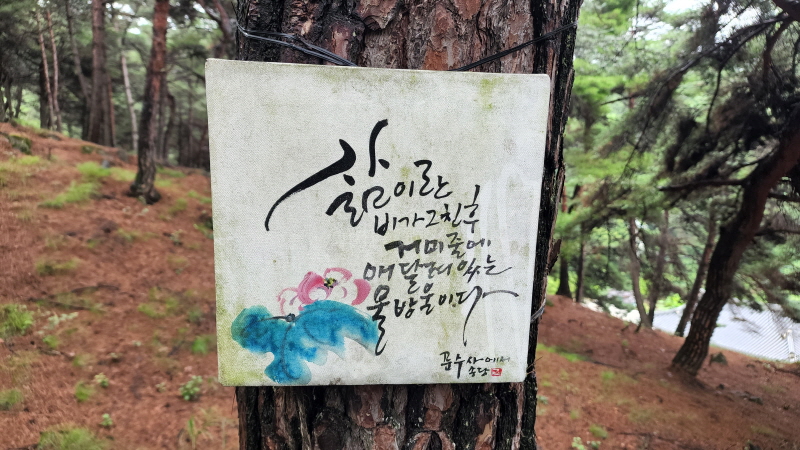 삶이란
비가 그친 후
거미줄에
매달려 있는
물방울이다
문수사에서
송담